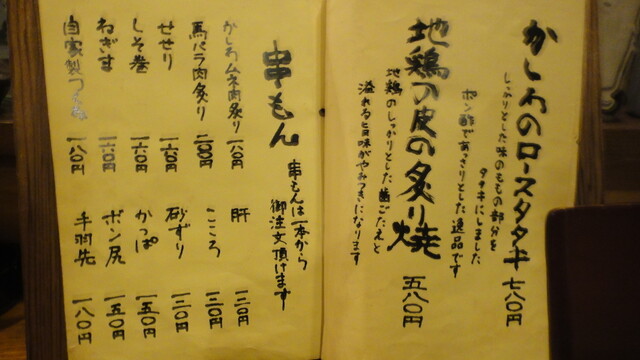 かしわのロースタタキ 七八〇円
しっかりとした味のももの部分を
タタキにしました
ポン酢であっさりとした逸品です
地鶏の皮の炙り焼 五八〇円
地鶏のしっかりとした歯ごたえと
溢れる旨味がやみつきになります
串もん
串もんは一本から
御注文頂けます
かしわムネ肉炙り 一八〇円
馬バラ肉炙り 二〇〇円
せせり 一六〇円
しそ巻 一六〇円
ねぎま 一六〇円
自家製つくね 一八〇円
肝 一二〇円
こころ 一二〇円
砂ずり 一二〇円
かっぱ 一五〇円
ボン尻 一五〇円
手羽先 一八〇円